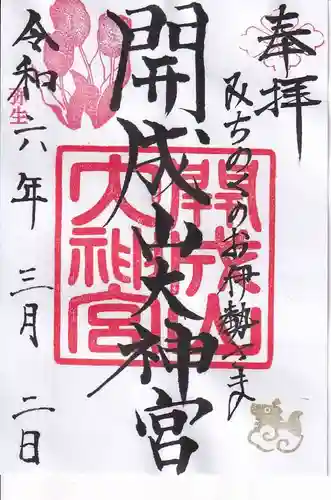 奉拝
みちのくのお伊勢さま
開成山大神宮
開成山
大神宮
弥生
令和六年三月二日